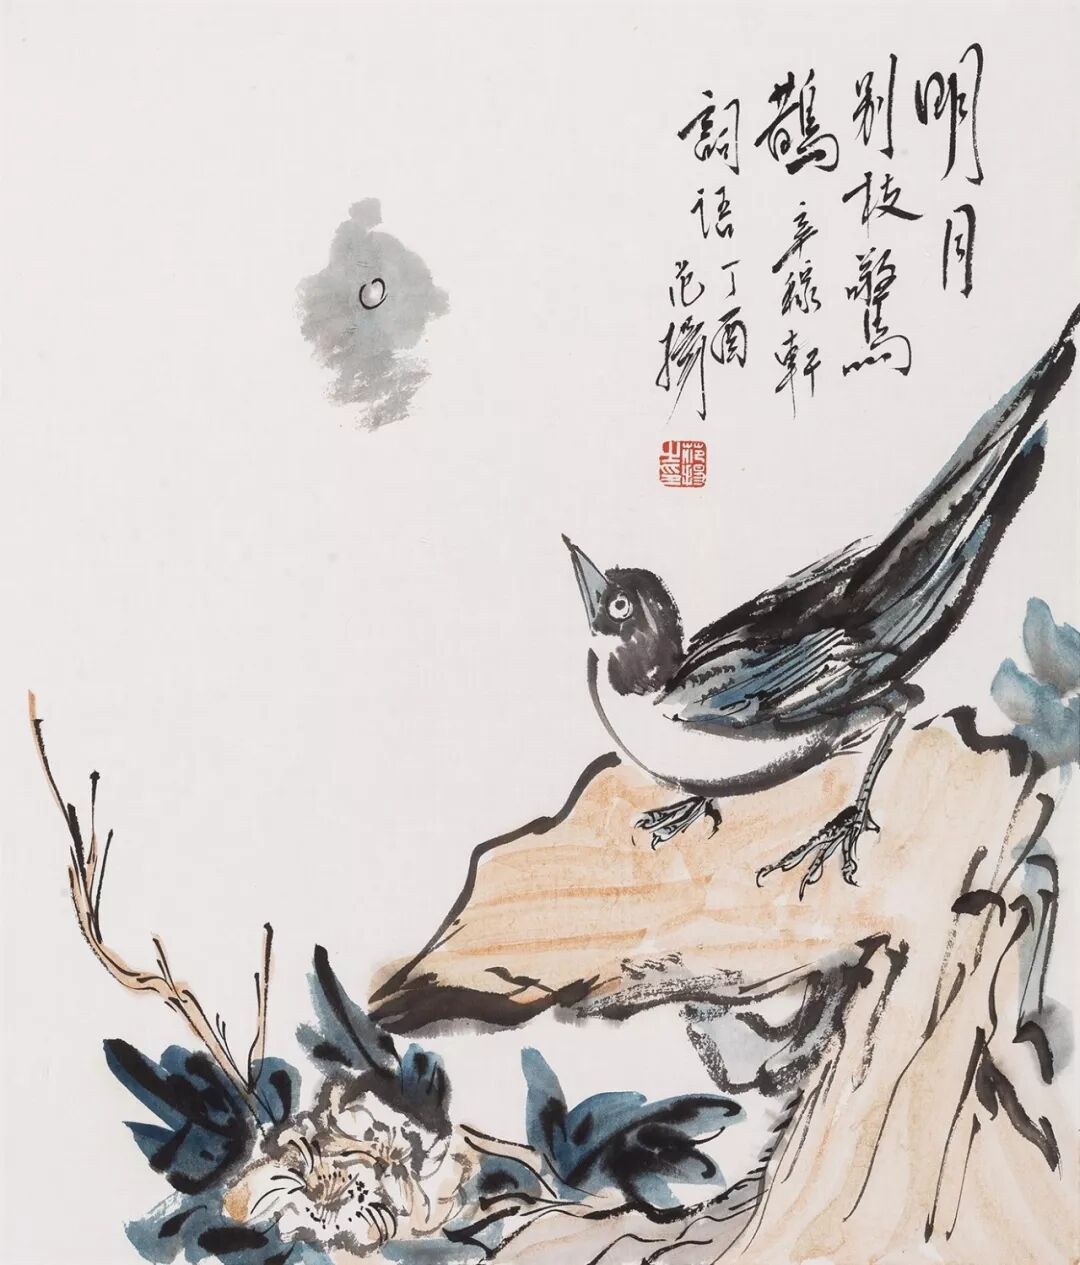 明月
别枝驚
鵲 辛稼軒
詞语 丁酉
范擴